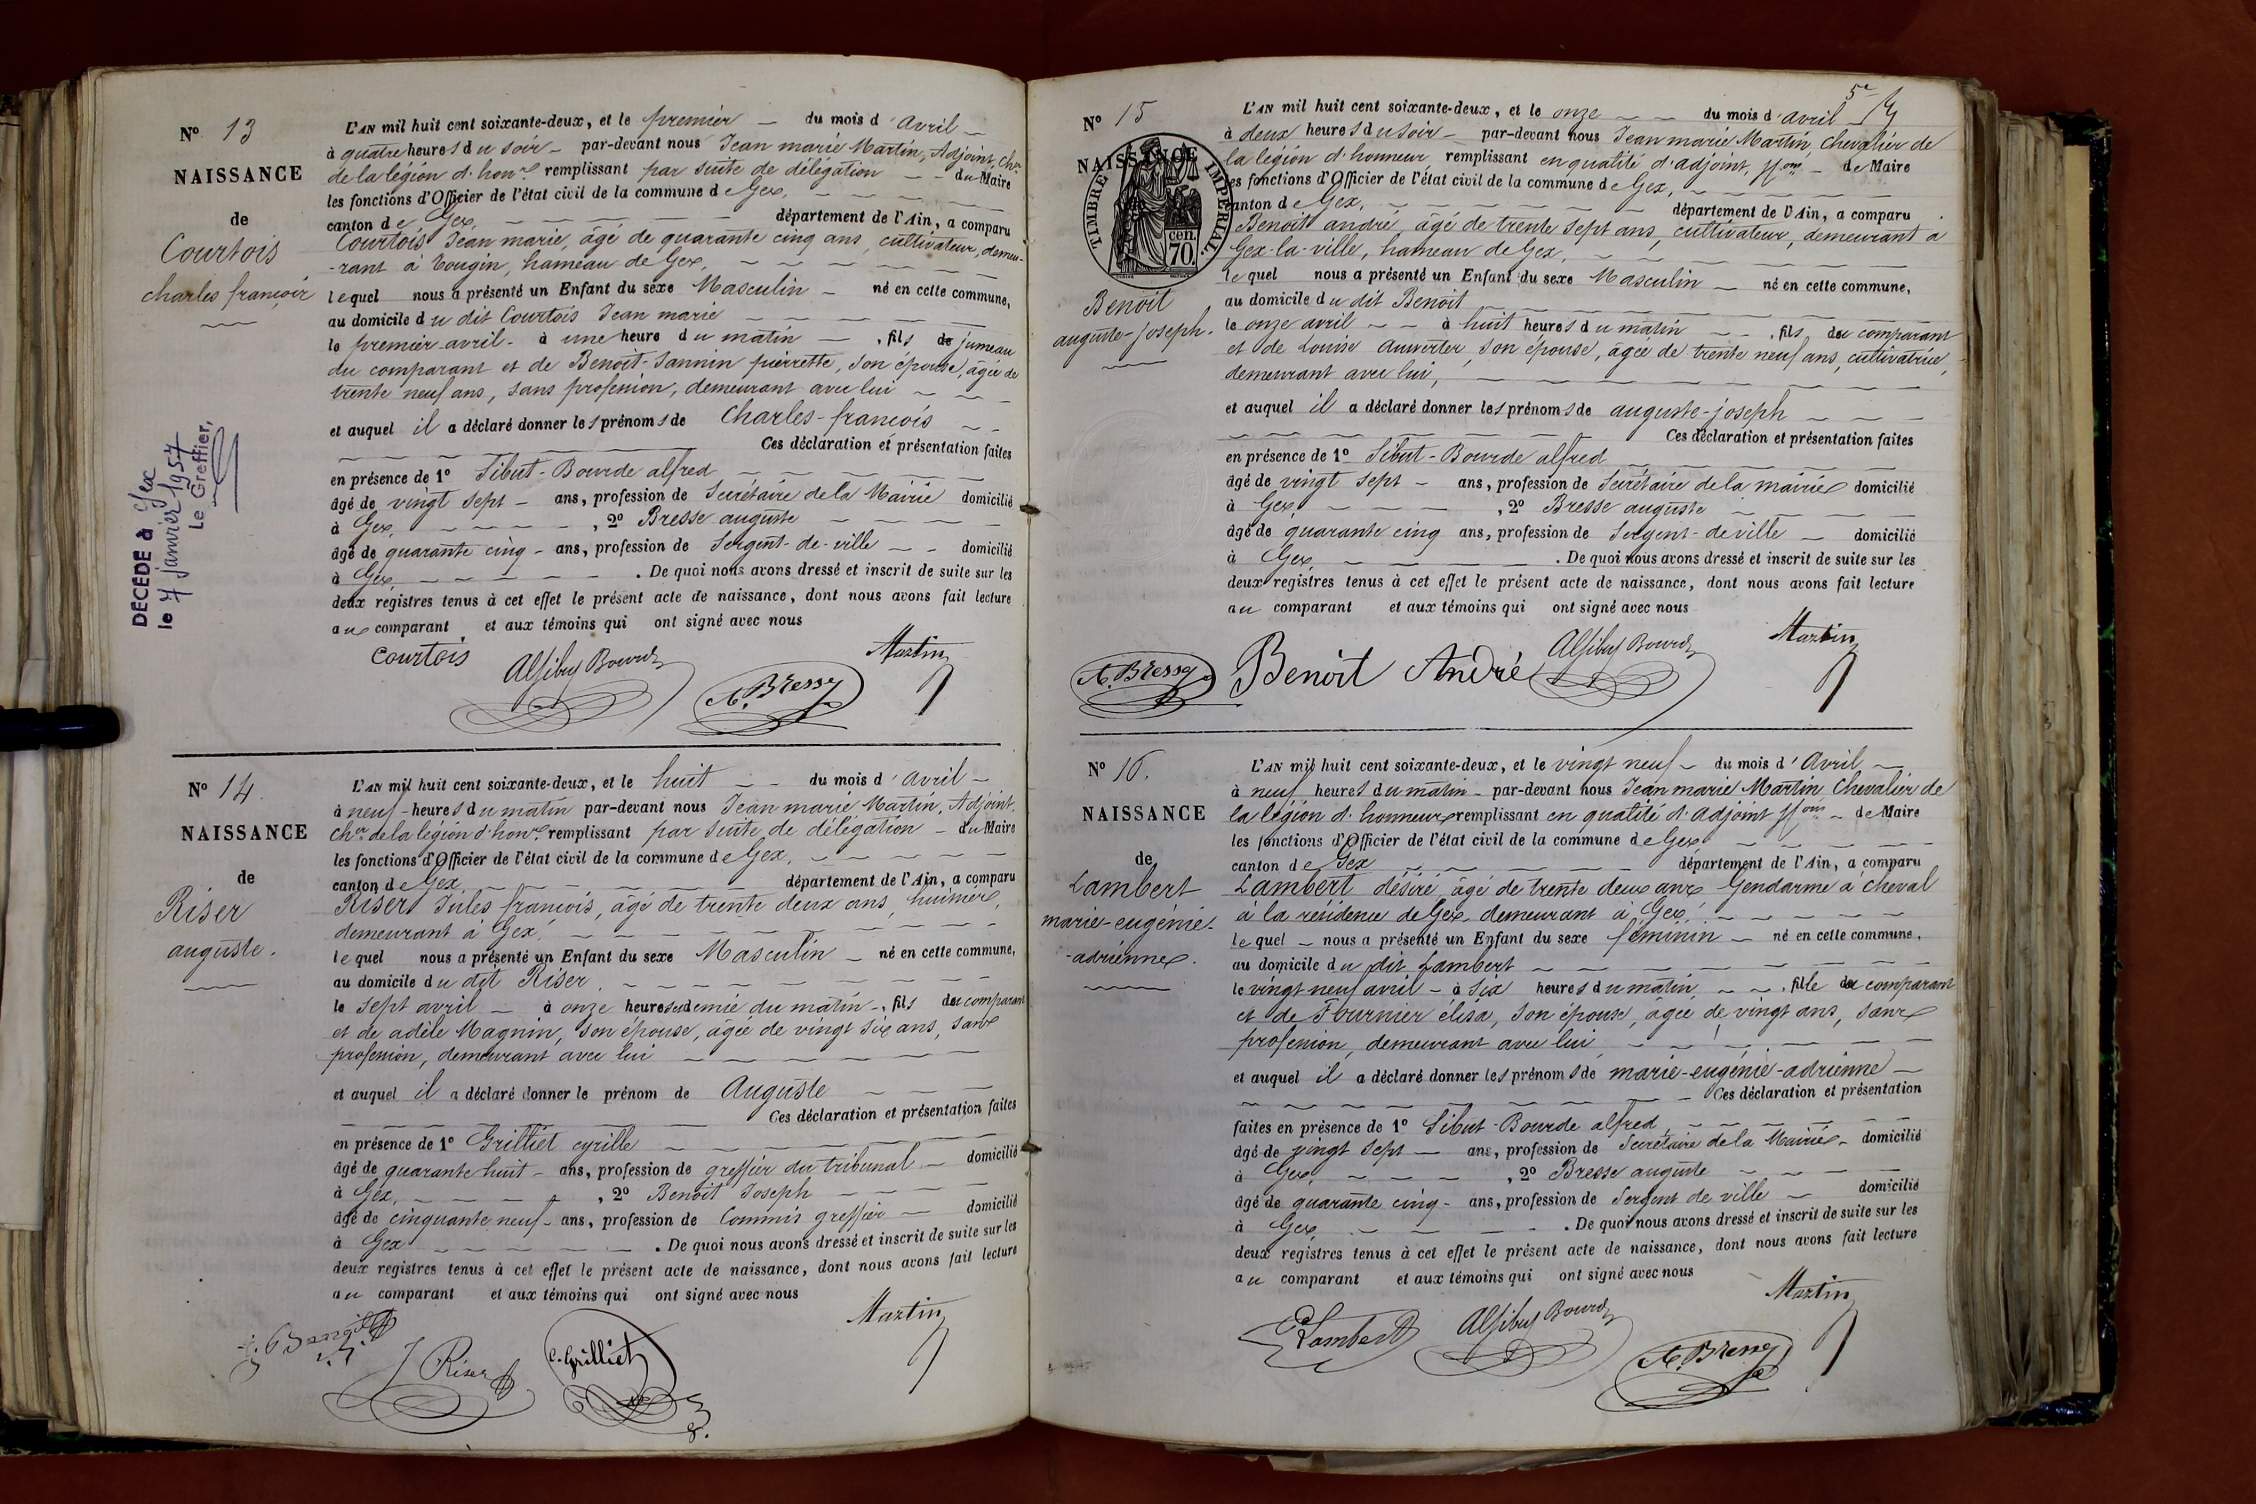 N° 13
NAISSANCE
de
Courtois
charles françois
DÉCÉDÉ à Gex
le 7 janvier 1957
Le Greffier,
L'AN mil huit cent soixante-deux, et le premier du mois d'Avril
à quatre heures du soir par-devant nous Jean marie Martin, Adjoint, Cher
de la légion d'honr remplissant par suite de délégation du Maire
les fonctions d'Officier de l'état civil de la commune de Gex,
canton de Gex, département de l'Ain, a comparu
Courtois Jean marie, âgé de quarante cinq ans, cultivateur, demeu-
-rant à Tougin, hameau de Gex,
lequel nous a présenté un Enfant du sexe Masculin né en cette commune,
au domicile du dit Courtois Jean marie
le premier avril à une heure du matin, fils jumeau
du comparant et de Benoit-Jannin pierrette, son épouse, âgée de
trente neuf ans, sans profession, demeurant avec lui
et auquel il a déclaré donner les prénoms de Charles-françois
Ces déclaration et présentation faites
en présence de 1° Sibut-Bourde alfred
âgé de vingt sept ans, profession de Secrétaire de la Mairie domicilié
à Gex, 2° Bresse auguste
âgé de quarante cinq ans, profession de Sergent-de-ville domicilié
à Gex. De quoi nous avons dressé et inscrit de suite sur les
deux registres tenus à cet effet le présent acte de naissance, dont nous avons fait lecture
au comparant et aux témoins qui ont signé avec nous
Courtois Alf Sibut Bourde A. Bresse Martin
N° 14.
NAISSANCE
de
Riser
auguste.
L'AN mil huit cent soixante-deux, et le huit du mois d'Avril
à neuf heures du matin par-devant nous Jean marie Martin, Adjoint
Cher de la légion d'honr remplissant par suite de délégation du Maire
les fonctions d'Officier de l'état civil de la commune de Gex,
canton de Gex, département de l'Ain, a comparu
Riser Jules françois, âgé de trente deux ans, huissier,
demeurant à Gex,
lequel nous a présenté un Enfant du sexe Masculin né en cette commune,
au domicile du dit Riser,
le sept avril à onze heures et demie du matin, fils du comparant
et de adèle Magnin, son épouse, âgée de vingt six ans, sans
profession, demeurant avec lui
et auquel il a déclaré donner le prénom de Auguste
Ces déclaration et présentation faites
en présence de 1° Grilliet cyrille
âgé de quarante huit ans, profession de greffier du tribunal domicilié
à Gex, 2° Benoit Joseph
âgé de cinquante neuf ans, profession de Commis greffier domicilié
à Gex. De quoi nous avons dressé et inscrit de suite sur les
deux registres tenus à cet effet le présent acte de naissance, dont nous avons fait lecture
au comparant et aux témoins qui ont signé avec nous
J Riser C. Grilliet Martin
5e
N° 15
NAISSANCE
TIMBRE IMPÉRIAL
70 cen.
Benoit
auguste-joseph.
L'AN mil huit cent soixante-deux, et le onze du mois d'avril
à deux heures du soir par-devant nous Jean marie Martin Chevalier de
la légion d'honneur remplissant en qualité d'adjoint, de Maire
les fonctions d'Officier de l'état civil de la commune de Gex,
canton de Gex, département de l'Ain, a comparu
Benoit andré, âgé de trente sept ans, cultivateur, demeurant à
Gex-la-ville, hameau de Gex,
lequel nous a présenté un Enfant du sexe Masculin né en cette commune,
au domicile du dit Benoit
le onze avril à huit heures du matin, fils du comparant
et de Louise, son épouse, âgée de trente neuf ans, cultivatrice,
demeurant avec lui,
et auquel il a déclaré donner les prénoms de auguste-joseph
Ces déclaration et présentation faites
en présence de 1° Sibut-Bourde alfred
âgé de vingt sept ans, profession de Secrétaire de la mairie domicilié
à Gex, 2° Bresse auguste
âgé de quarante cinq ans, profession de Sergent-de ville domicilié
à Gex. De quoi nous avons dressé et inscrit de suite sur les
deux registres tenus à cet effet le présent acte de naissance, dont nous avons fait lecture
au comparant et aux témoins qui ont signé avec nous
A. Bresse Benoit André Alf Sibut Bourde Martin
N° 16.
NAISSANCE
de
Lambert
marie-eugénie-
-adrienne.
L'AN mil huit cent soixante-deux, et le vingt neuf du mois d'Avril
à neuf heures du matin par-devant nous Jean marie Martin Chevalier de
la légion d'honneur remplissant en qualité d'adjoint de Maire
les fonctions d'Officier de l'état civil de la commune de Gex
canton de Gex département de l'Ain, a comparu
Lambert désiré, âgé de trente deux ans Gendarme à cheval
à la résidence de Gex, demeurant à Gex,
lequel nous a présenté un Enfant du sexe féminin né en cette commune,
au domicile du dit Lambert
le vingt neuf avril à six heures du matin, fille du comparant
et de Fournier élisa, son épouse, âgée de vingt ans, sans
profession, demeurant avec lui
et auquel il a déclaré donner les prénoms de marie-eugénie-adrienne
Ces déclaration et présentation
faites en présence de 1° Sibut-Bourde alfred
âgé de vingt sept ans, profession de Secrétaire de la Mairie domicilié
à Gex, 2° Bresse auguste
âgé de quarante cinq ans, profession de Sergent de ville domicilié
à Gex. De quoi nous avons dressé et inscrit de suite sur les
deux registres tenus à cet effet le présent acte de naissance, dont nous avons fait lecture
au comparant et aux témoins qui ont signé avec nous
Lambert Alf Sibut Bourde A. Bresse Martin